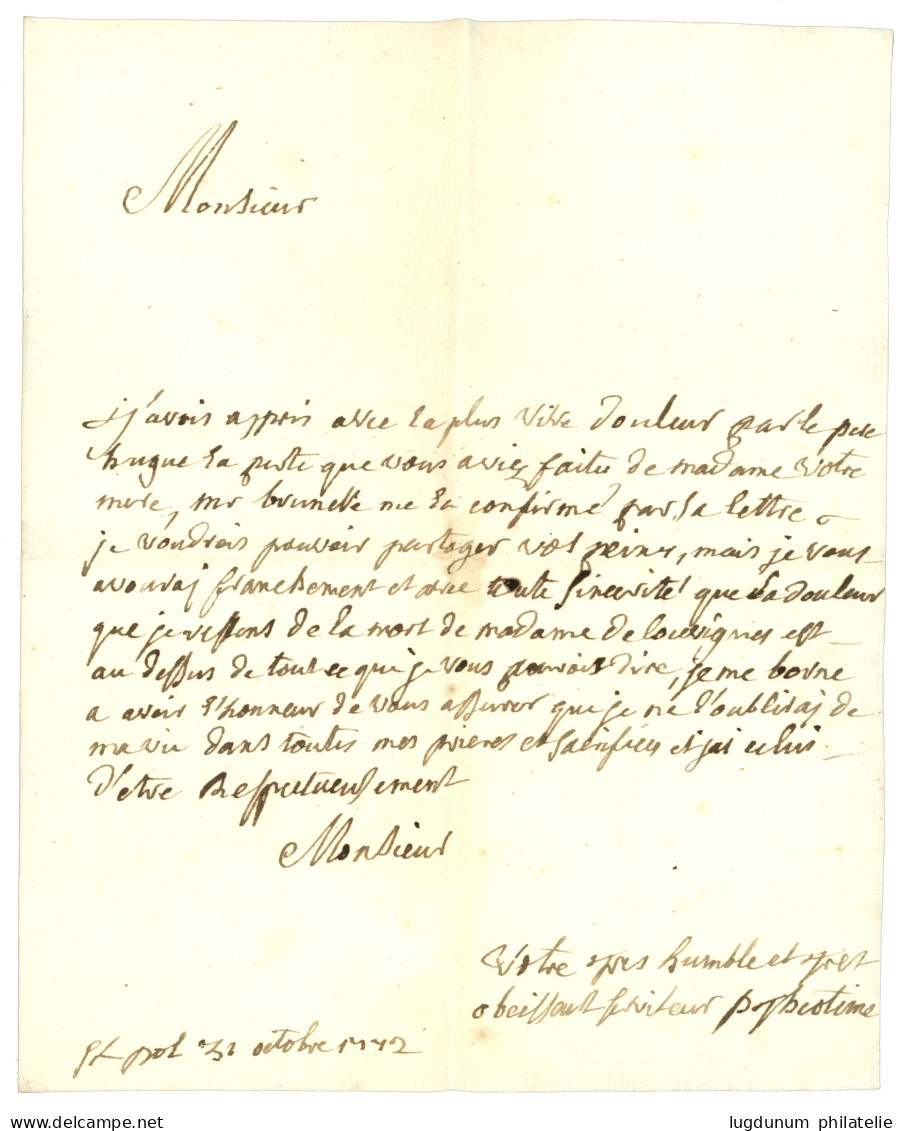 Monsieur
j'avois appris avec la plus vive douleur par le pere
hugue la perte que vous aviez faitte de madame votre
mere, mr brunele me la confirmé par sa lettre
je voudrois pouvoir partager vos peines, mais je vous
avouraj franchement et avec toute sincerité que la douleur
que je ressens de la mort de madame de est
au dessus de tout ce que je vous pourrois dire, je me borne
a avoir l'honneur de vous assurer que je ne l'oubliraj de
ma vie dans toutes mes prieres et sacrifices et j'ai celui
d'etre Respectueusement
Monsieur
Votre tres humble et tres
obeissant serviteur p theotime
St pol 31 octobre 1772
lugdunum philatelie